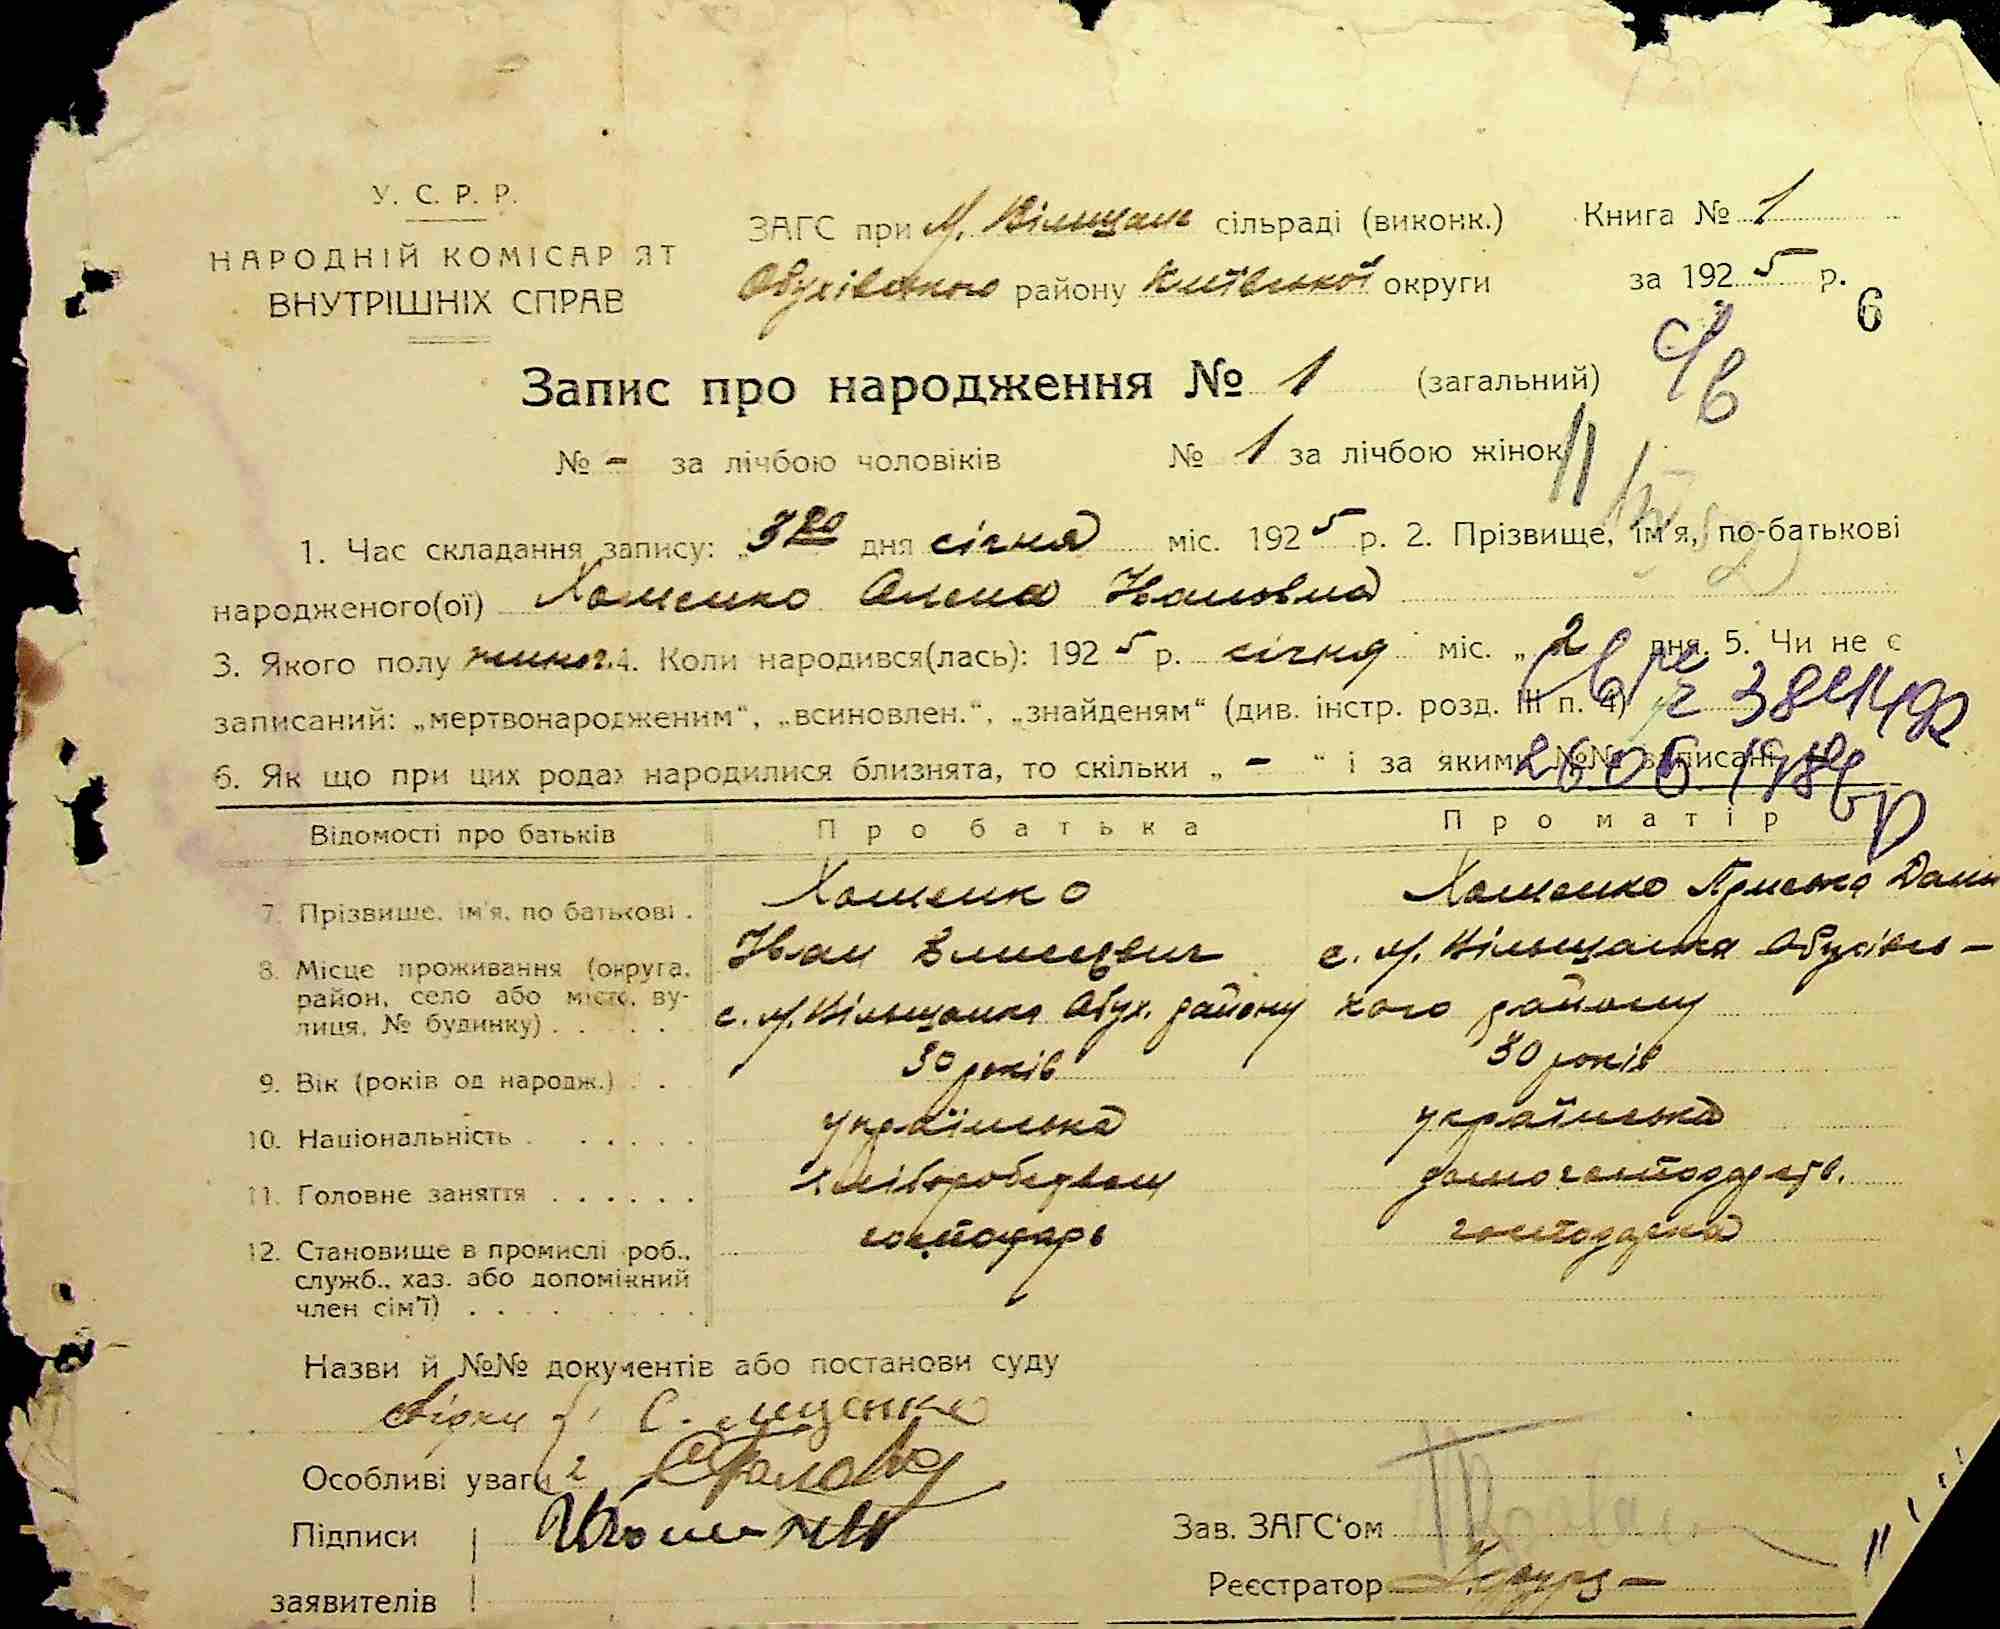 У. С. Р. Р.
НАРОДНІЙ КОМІСАРІЯТ
ВНУТРІШНІХ СПРАВ
ЗАГС при М. Вільщан. сільраді (виконк.)
Обухівського району Київської округи
Книга № 1
за 1925 р.
6
Запис про народження № 1 (загальний)
№ - за лічбою чоловіків № 1 за лічбою жінок
1. Час складання запису: „3го дня січня міс. 1925 р. 2. Прізвище, ім'я, по-батькові
народженого(ої) Хоменко Олена Івановна
3. Якого полу жіноч. 4. Коли народився(лась): 1925 р. січня міс. „2 дня. 5. Чи не є
записаний: „мертвонародженим“, „всиновлен.“, „знайденям“ (див. інстр. розд. III п. 4)
6. Як що при цих родах народилися близнята, то скільки „ - “ і за якими №№ записані
Відомості про батьків Про батька Про матір
7. Прізвище, ім'я, по батькові . Хоменко
Іван Елисеєвич
Хоменко Пріська Дани
8. Місце проживання (округа,
район, село або місто, ву-
лиця, № будинку) . . . . .
с. М. Вільщанка Обух. району
с. М. Вільщанка Обухівсь-
кого району
9. Вік (років од народж.) . . 30 років 30 років
10. Національність . . . . . . українська українська
11. Головне заняття . . . . . . хлібороб домогосподарств.
12. Становище в промислі роб.,
служб., хаз. або допоміжний
член сім'ї) . . . . . . . .
господарь господарка
Назви й №№ документів або постанови суду
свідки 1
Особливі уваги 2
Підписи
заявителів
Зав. ЗАГС'ом
Реєстратор